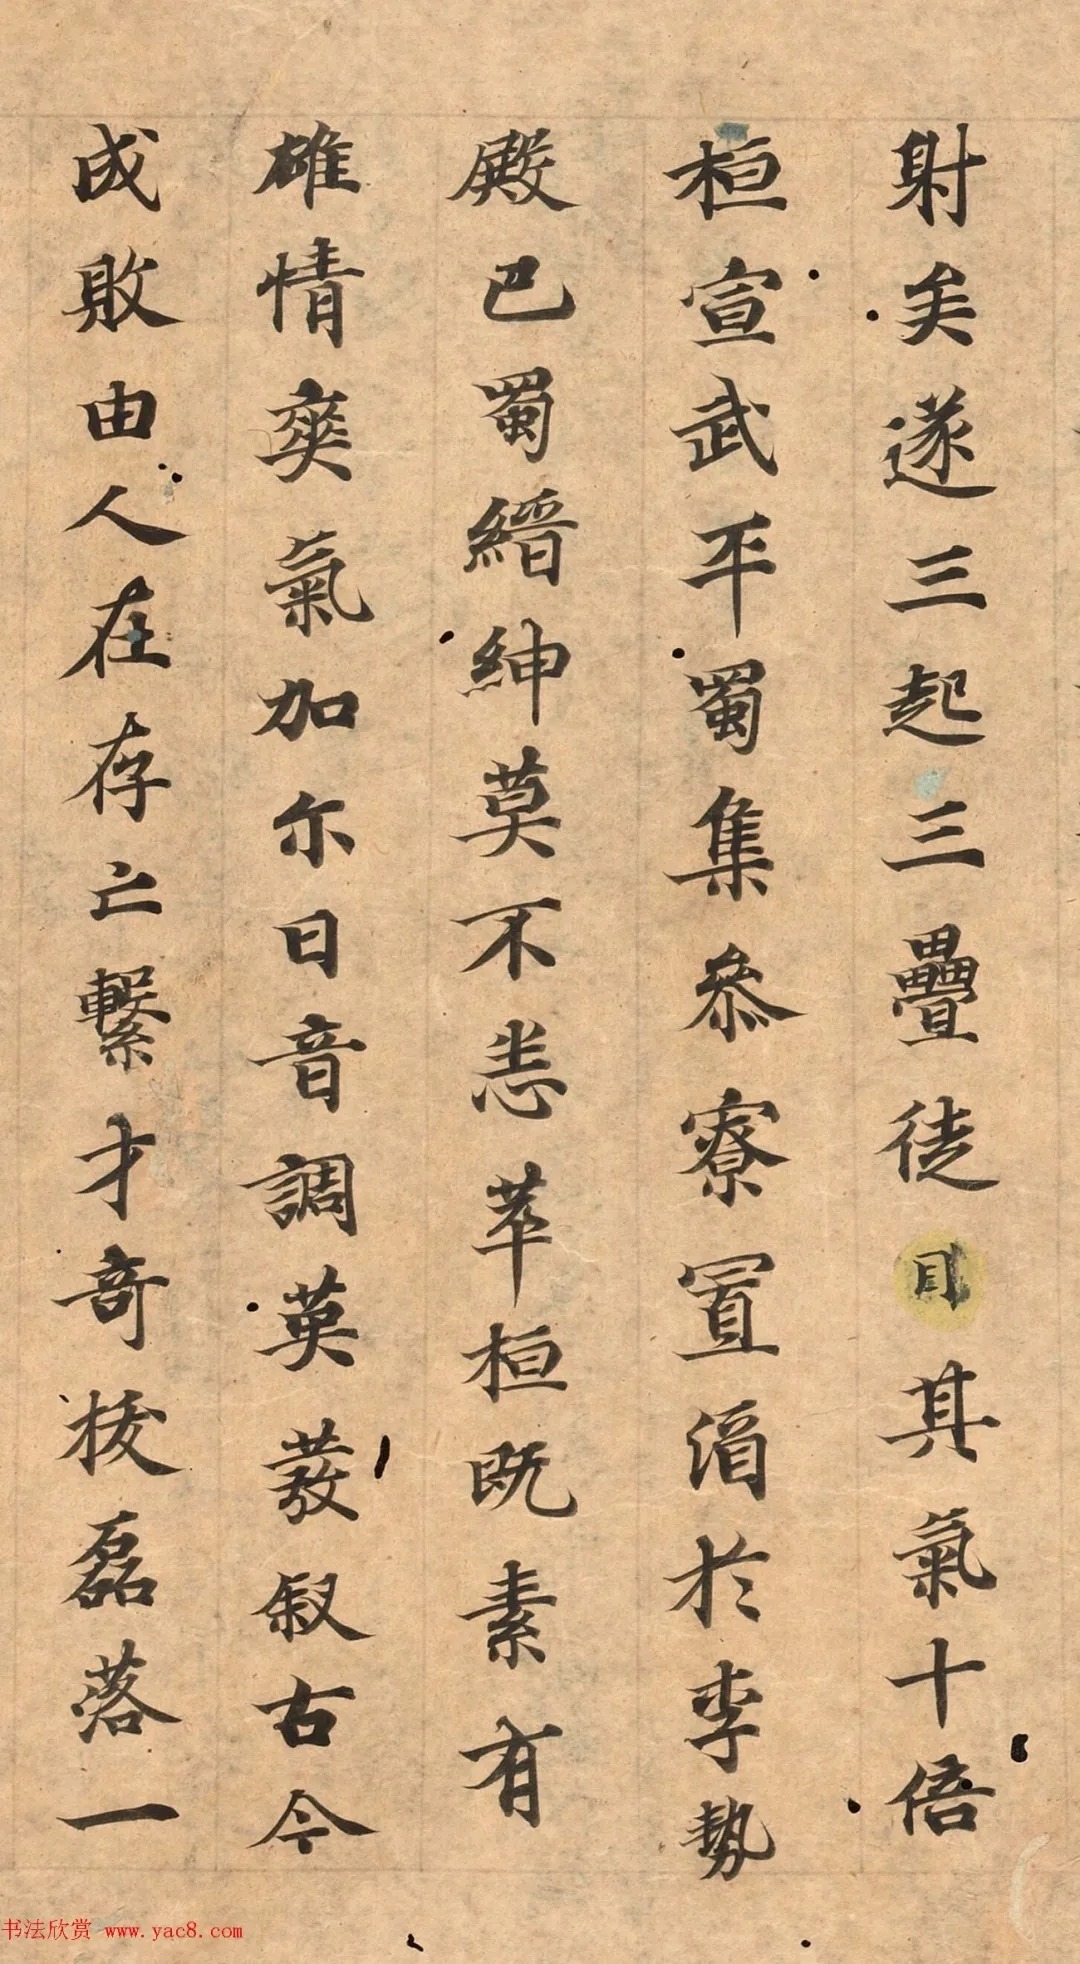 射矣遂三起三疊徒自其氣十倍
桓宣武平蜀集叅寮置酒於李勢
殿巴蜀縉紳莫不悉萃桓既素有
雄情爽氣加尒日音調英發叙古今
成敗由人在存亡繫才奇拔磊落一
书法欣赏 www.yac8.com